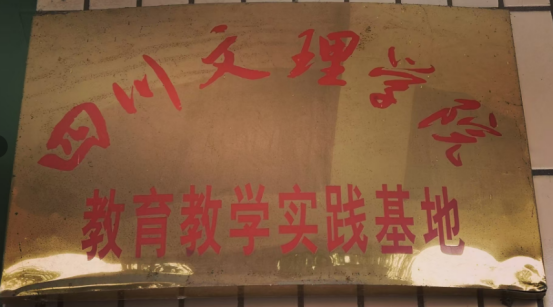 四川文理学院
教育教学实践基地